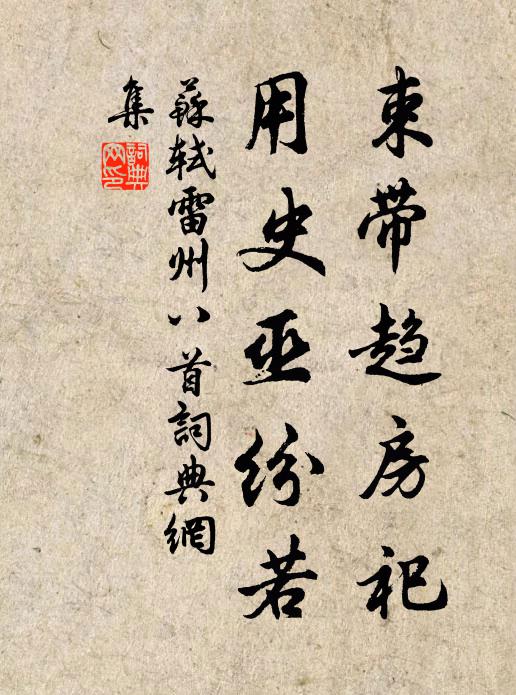 束帶趨房祀
用史巫紛若
蘇軾雷州八首詞典網
集
詞典网印